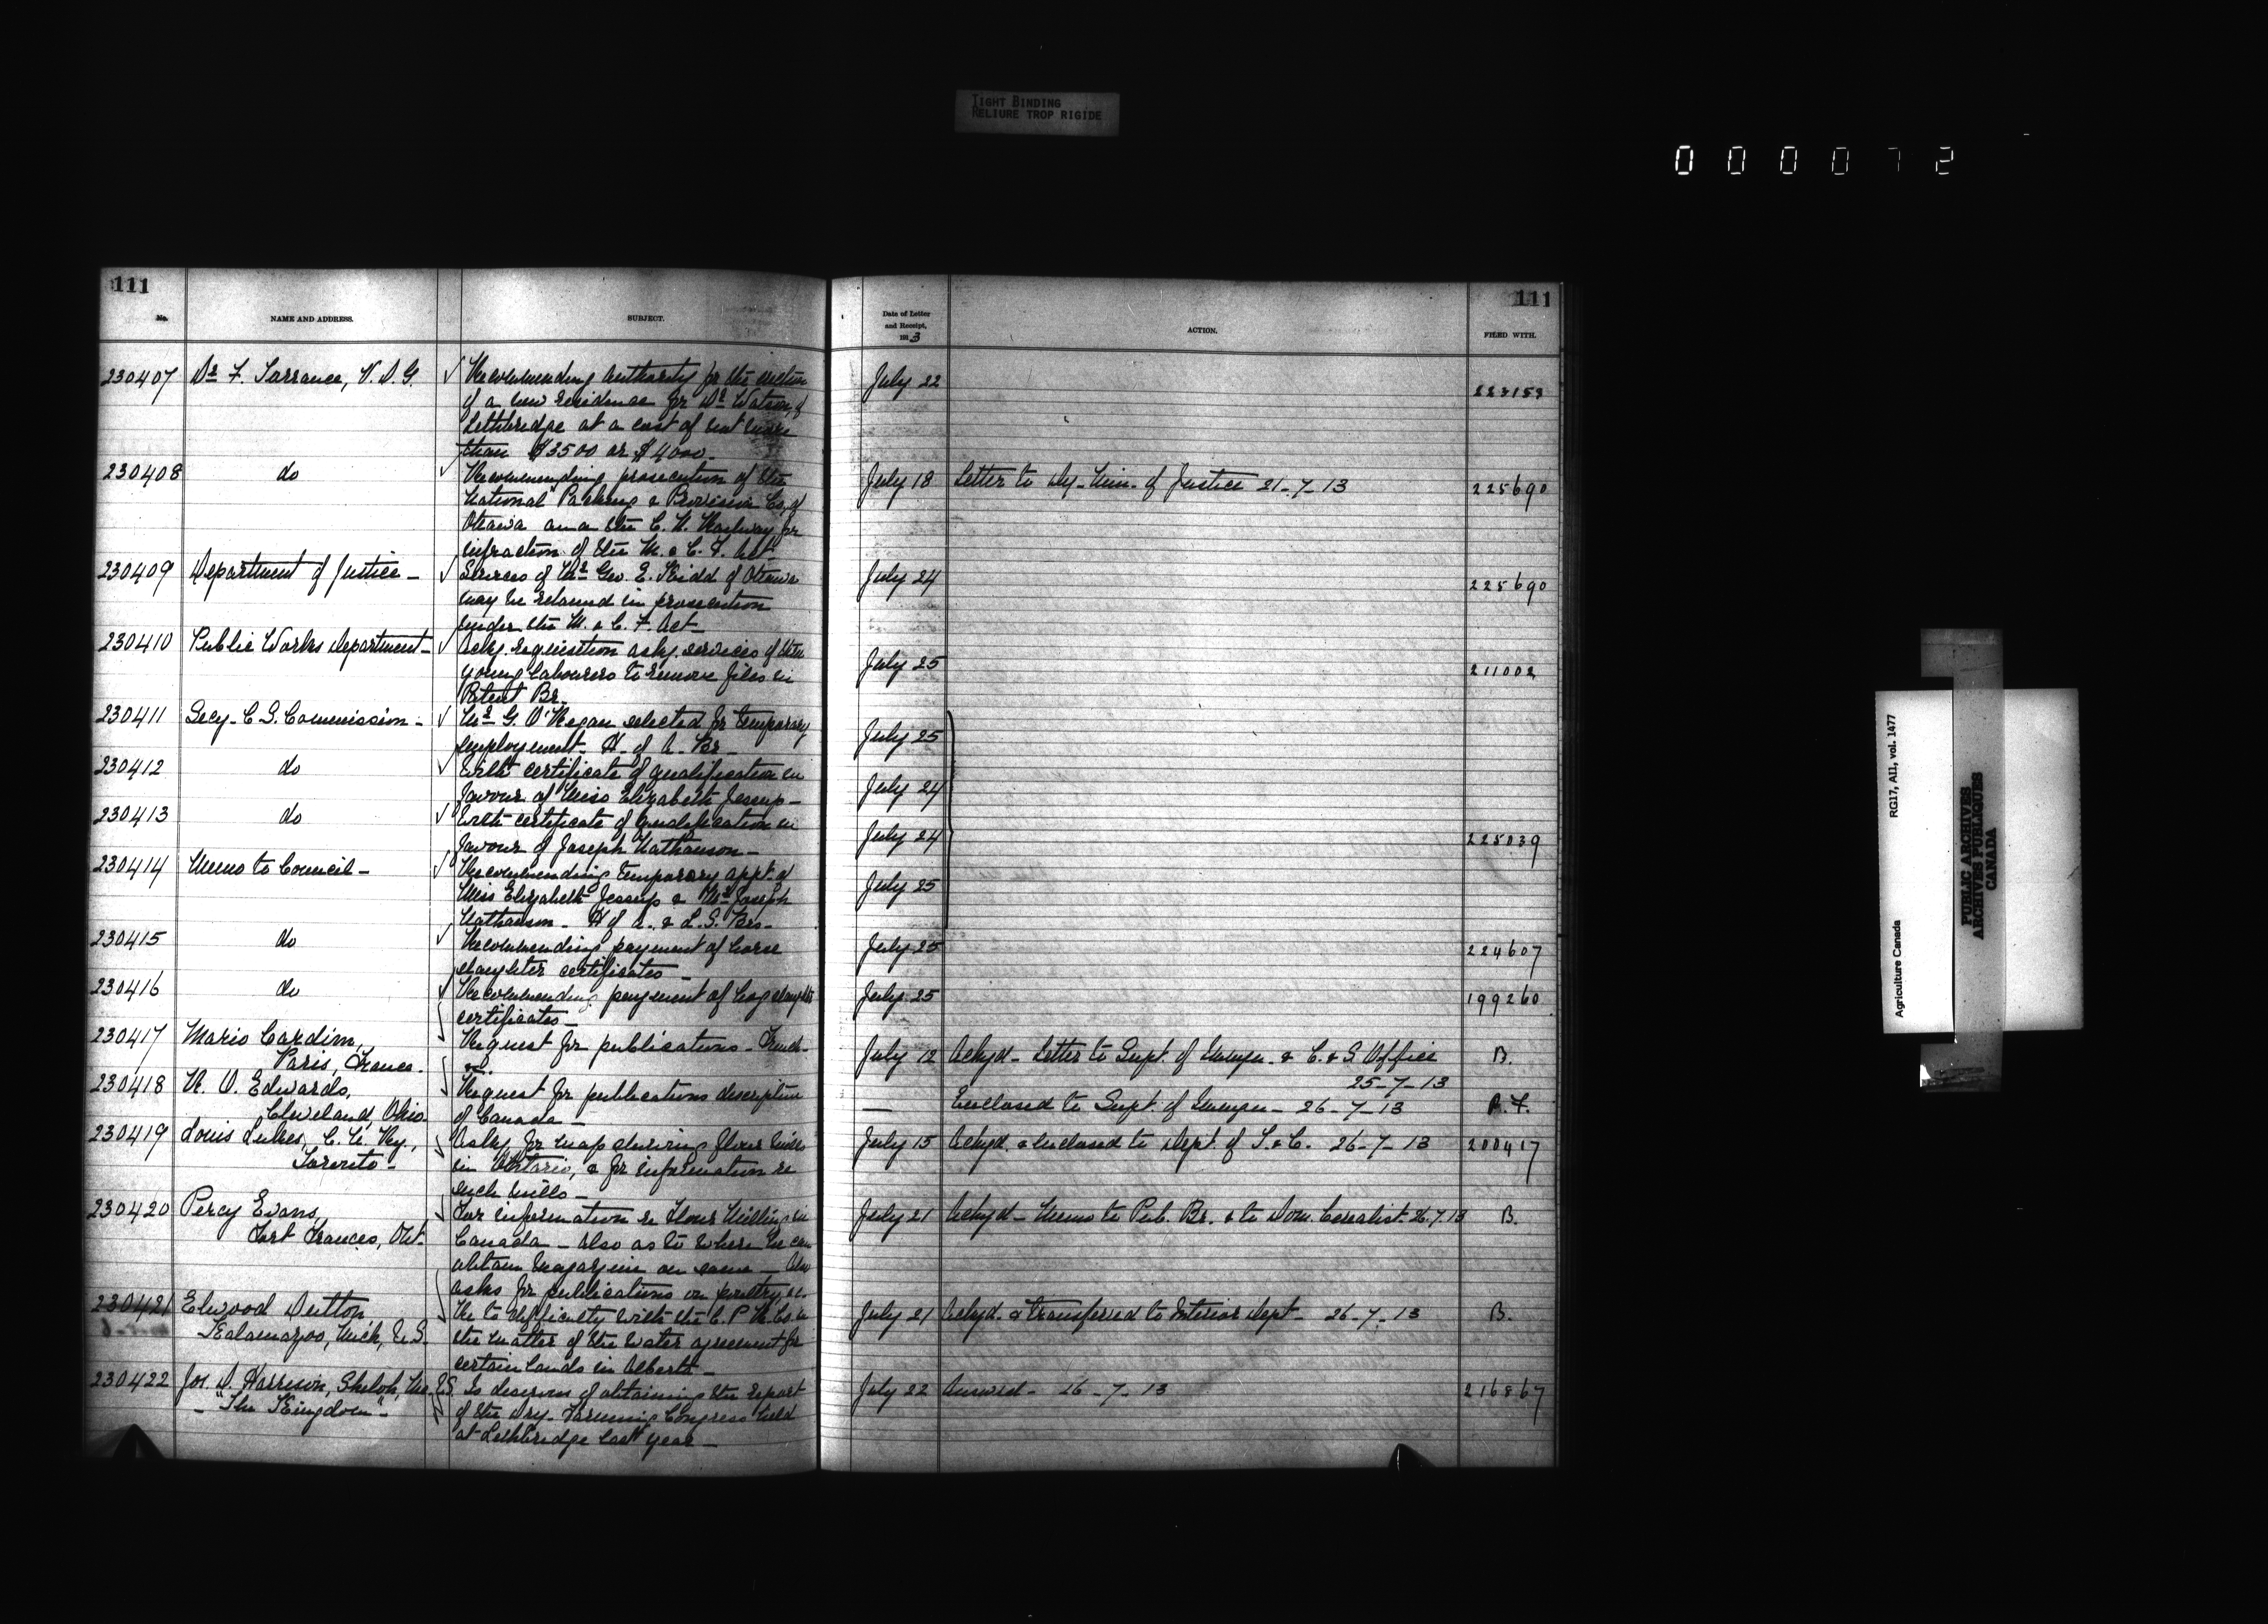 TIGHT BINDING
RELIURE TROP RIGIDE
000072
111
No.
NAME AND ADDRESS.
SUBJECT.
230407 Dr F. Torrance, V.D.G. Recommending authority for the erection
of a new residence for Dr Watson, of
Lethbridge at a cost of not more
than $3500 or $4000.
230408 do Recommending prosecution of the
National Packing & Provision Co. of
Ottawa and the C. N. Railway for
infraction of the M. & C. F. Act
230409 Department of Justice - Services of Mr Geo. E. Kidd of Ottawa
may be retained in prosecution
under the M. & C. F. Act -
230410 Public Works Department - Ackg. requisition askg. services of three
young labourers to remove files in
Patent Br.
230411 Secy. C. S. Commission - Mr G. O'Regan selected for temporary
employment. H. of A. Br -
230412 do With certificate of qualification in
favour of Miss Elizabeth Jessup -
230413 do With certificate of qualification in
favour of Joseph Nathanson -
230414 Memo to Council - Recommending temporary appt. of
Miss Elizabeth Jessup & Mr Joseph
Nathanson - H of A. & L. S. Brs -
230415 do Recommending payment of horse
slaughter certificates -
230416 do Recommending payment of hog slaughter
certificates -
230417 Mario Cardim, Request for publications - French -
Paris, France.
230418 R. O. Edwards, Request for publications descriptive
Cleveland, Ohio. of Canada -
230419 Louis Lukes, C. N. Ry., Askg. for map showing flour mills
Toronto - in Ontario, & for information re
such mills -
230420 Percy Evans, For information re Flour Milling in
Fort Frances, Ont. Canada - Also as to where he can
obtain magazine on same - Also
asks for publications on poultry, &c.
230421 Elwood Dutton Re to difficulty with the C. P. R. Co. in
Kalamazoo, Mich, U.S. the matter of the water agreement for
certain lands in Alberta -
230422 Jos. D. Harrison, Shiloh, Me. U.S. Is desirous of obtaining the report
- "The Kingdom" - of the Dry-Farming Congress held
at Lethbridge last year -
111
Date of Letter
and Receipt,
1913
ACTION.
FILED WITH.
July 22 223153
July 18 Letter to Dy. Min. of Justice 21-7-13 225690
July 24 225690
July 25 211002
July 25
July 24
July 24 225039
July 25
July 25 224607
July 25 199260
July 12 Ackgd - Letter to Supt. of Immgn. & C. & S. Office B.
25-7-13
— Enclosed to Supt. of Immgn - 26-7-13 R. F.
July 15 Ackgd. & enclosed to Dept. of T. & C. 26-7-13 200417
July 21 Ackgd - Memo to Pub. Br. & to Dom. Cerealist 26.7.13 B.
July 21 Ackgd. & transferred to Interior Dept - 26-7-13 B.
July 22 Answd - 26-7-13 216867
Agriculture Canada RG17, AII, vol. 1477
PUBLIC ARCHIVES
ARCHIVES PUBLIQUES
CANADA